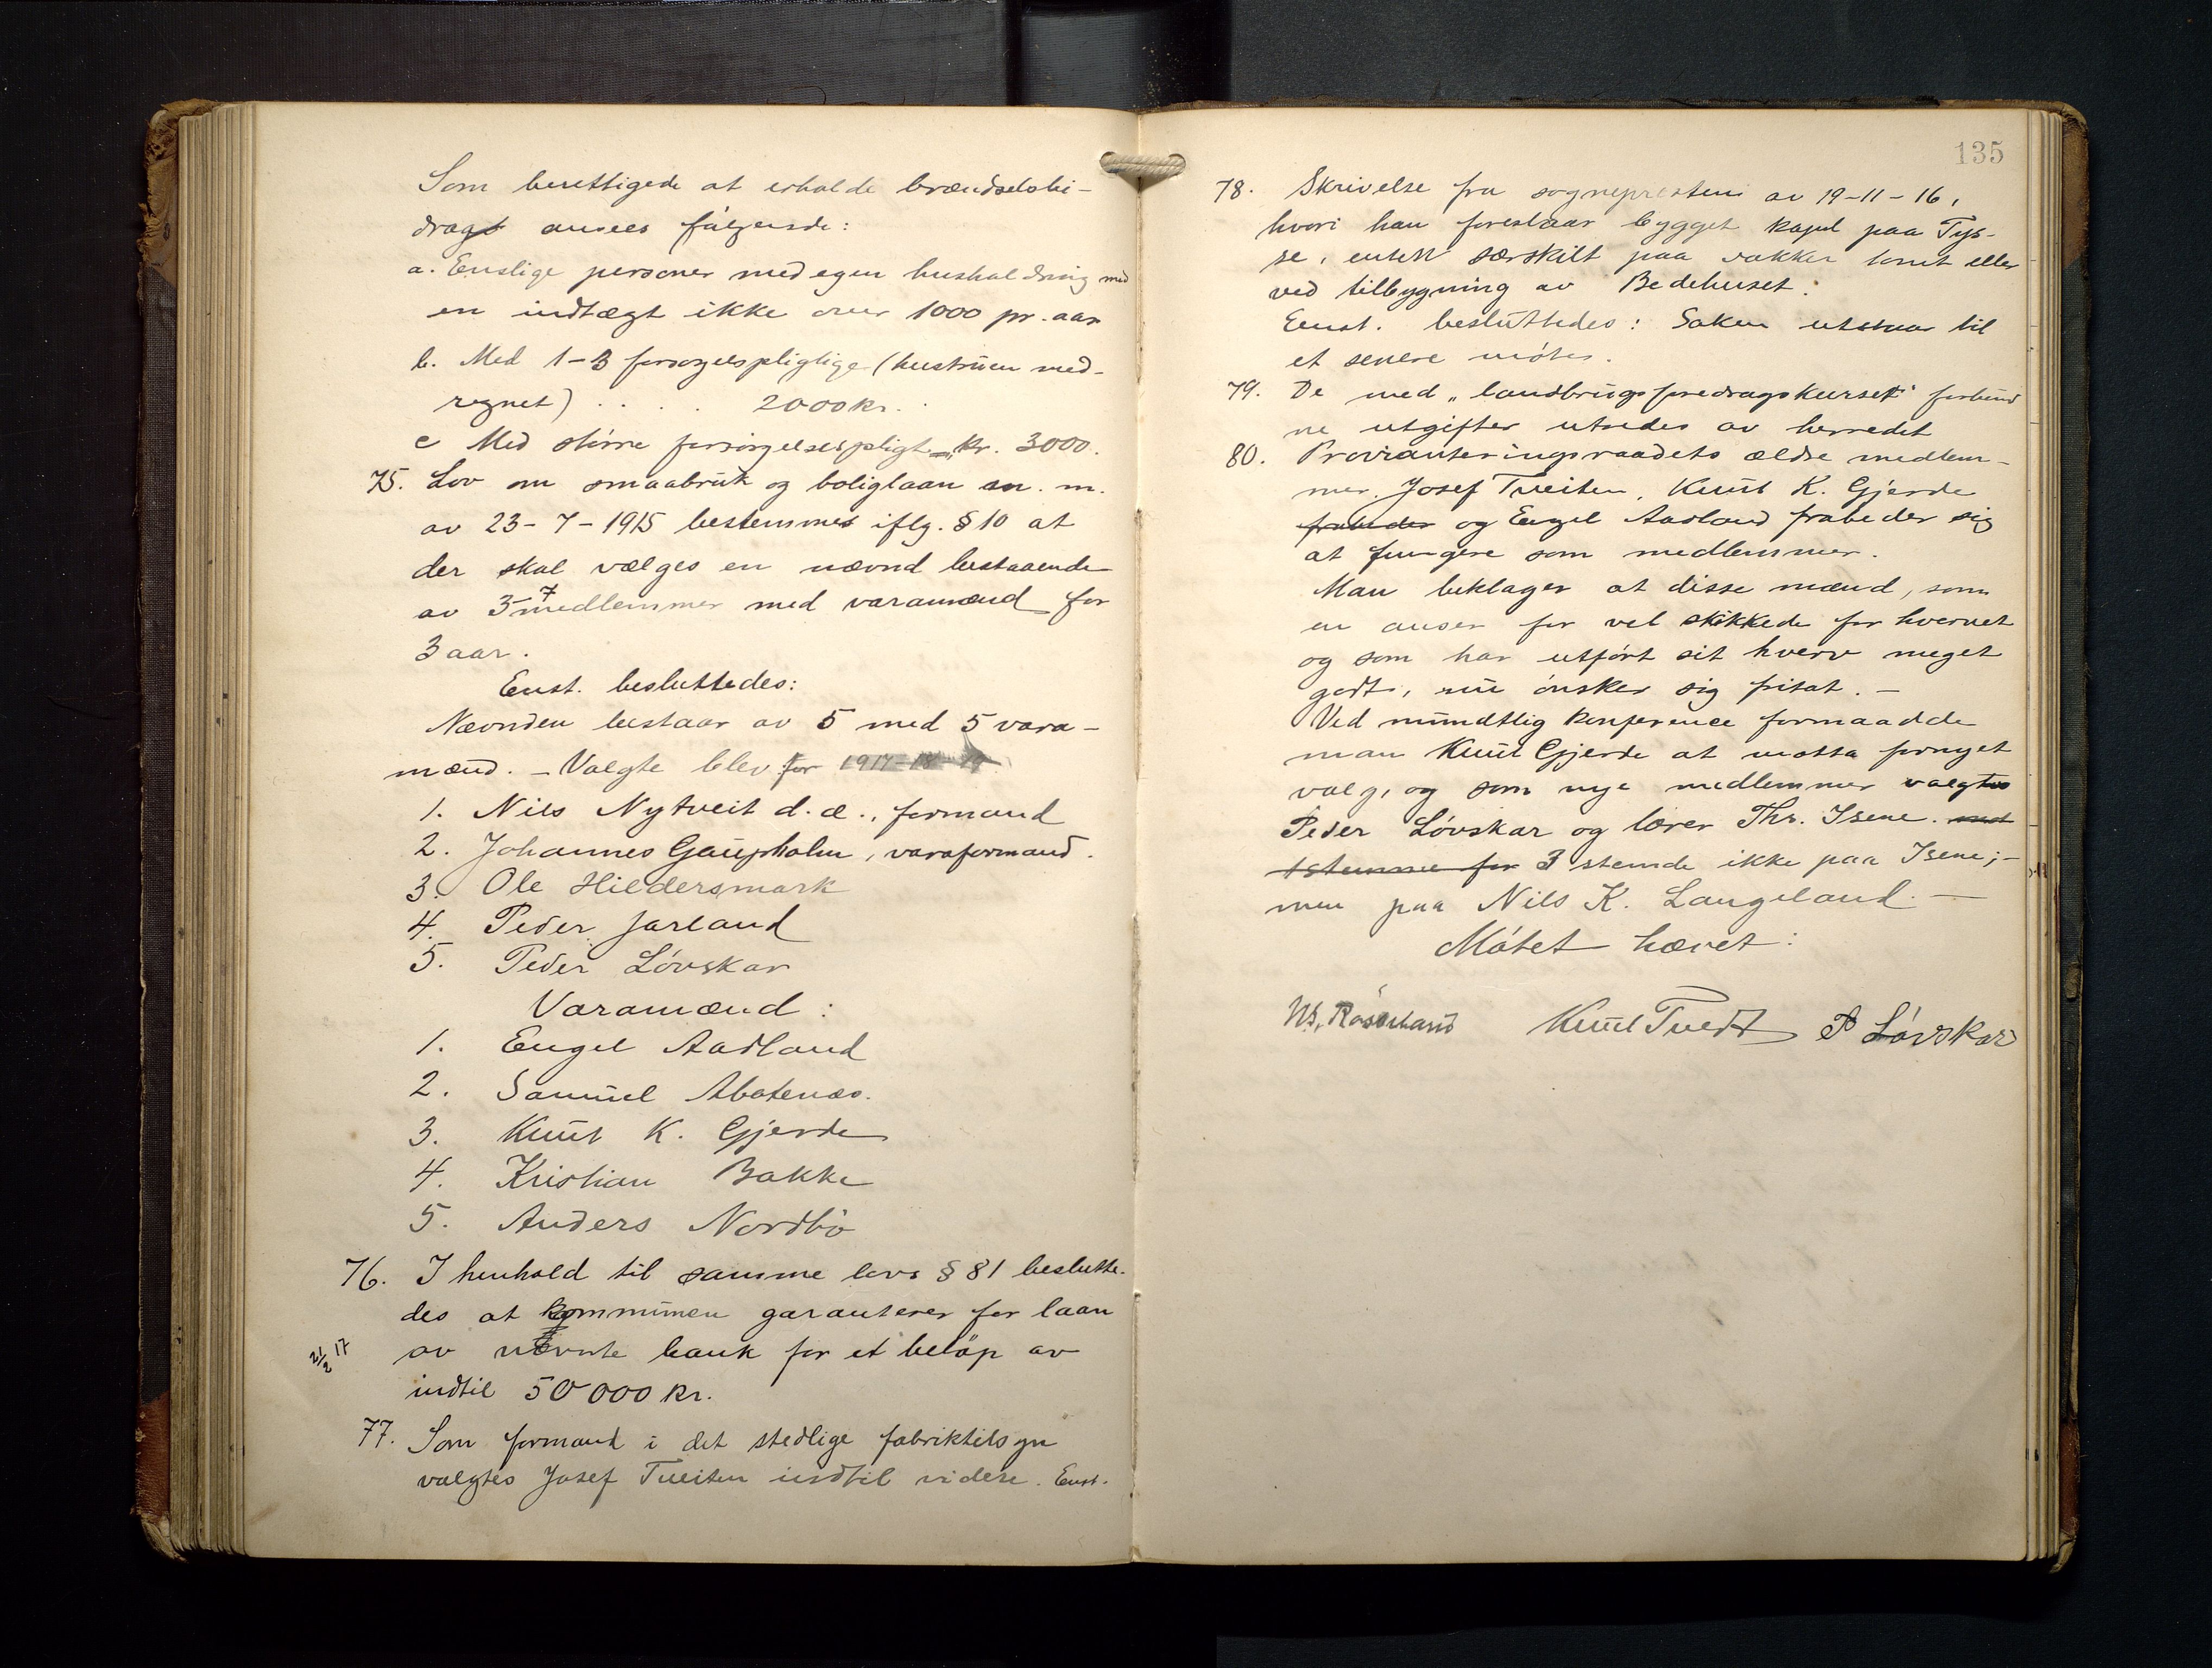 Som berettigede at erholde brændselsbi-
drag ansees følgende:
a. Enslige personer med egen husholdning med
en indtægt ikke over 1000 pr. aar
b. Med 1-3 forsørgelspligtige (hustruen med-
regnet) . . . . 2000 kr.
c Med større forsørgelsespligt - kr. 3000.
75. Lov om smaabruk og boliglaan m. m.
av 23-7-1915 bestemmes iflg. § 10 at
der skal vælges en nævnd bestaaende
av 3-7 medlemmer med varamænd for
3 aar.
Enst. besluttedes:
Nævnden bestaar av 5 med 5 vara-
mænd. - Valgte blev: for 1917-18-19
1. Nils Nytveit d. æ., formand
2. Johannes Gaupholm, varaformand.
3. Ole Hildersmark
4. Peder Jarland
5. Peder Løvskar
Varamænd:
1. Engel Aadland
2. Samuel Abotenæs.
3. Knut K. Gjerde
4. Kristian Bakke
5. Anders Nordbø
76. I henhold til samme lovs § 81 beslutte-
des at kommunen garanterer for laan
21/2 17
av nævnte bank for et beløp av
indtil 50 000 kr.
77. Som formand i det stedlige fabriktilsyn
valgtes Josef Tveiten indtil videre. Enst.
135
78. Skrivelse fra sogneprestens av 19-11-16,
hvori han foreslaar bygget kapel paa Tys-
se, enten særskilt paa vakker tomt eller
ved tilbygning av Bedehuset.
Enst. besluttedes: Saken utstaar til
et senere møte.
79. De med "landbrugsforedragskurset" forbund
ne utgifter utredes av herredet
80. Provianteringsraadets ældre medlem-
mer. Josef Tveiten, Knut K. Gjerde
frabeder og Engel Aadland frabeder sig
at fungere som medlemmer.
Man beklager at disse mænd, som
en anser for vel skikkede for hvervet
og som har utført sit hverv meget
godt, nu ønsker sig fritat. -
Ved mundtlig konference formaadde
man Knut Gjerde at motta fornyet
valg, og som nye medlemmer valgtes
Peder Løvskar og lærer Thr. Isene. mot
1 stemme for 3 stemde ikke paa Isene; -
men paa Nils K. Langeland. -
Møtet hævet:
Knut Tvedt P Løvskar